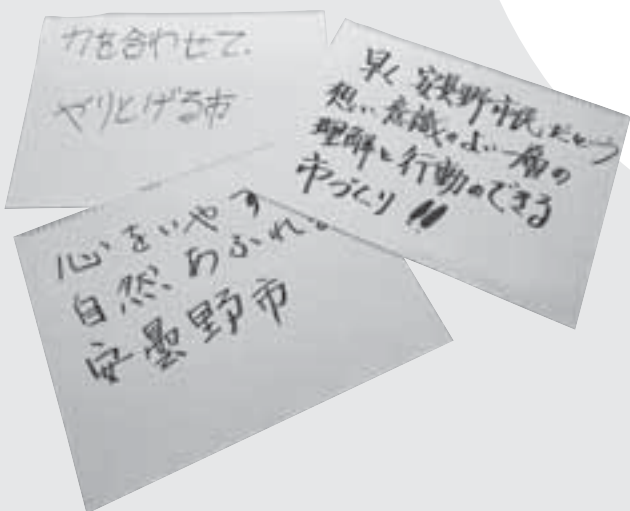 力を合わせて、
やりとげる市
早く安曇野市民だという
想い意識のよい一層の
理解と行動のできる
市づくり!!
心をいやす
自然、あふれる
安曇野市